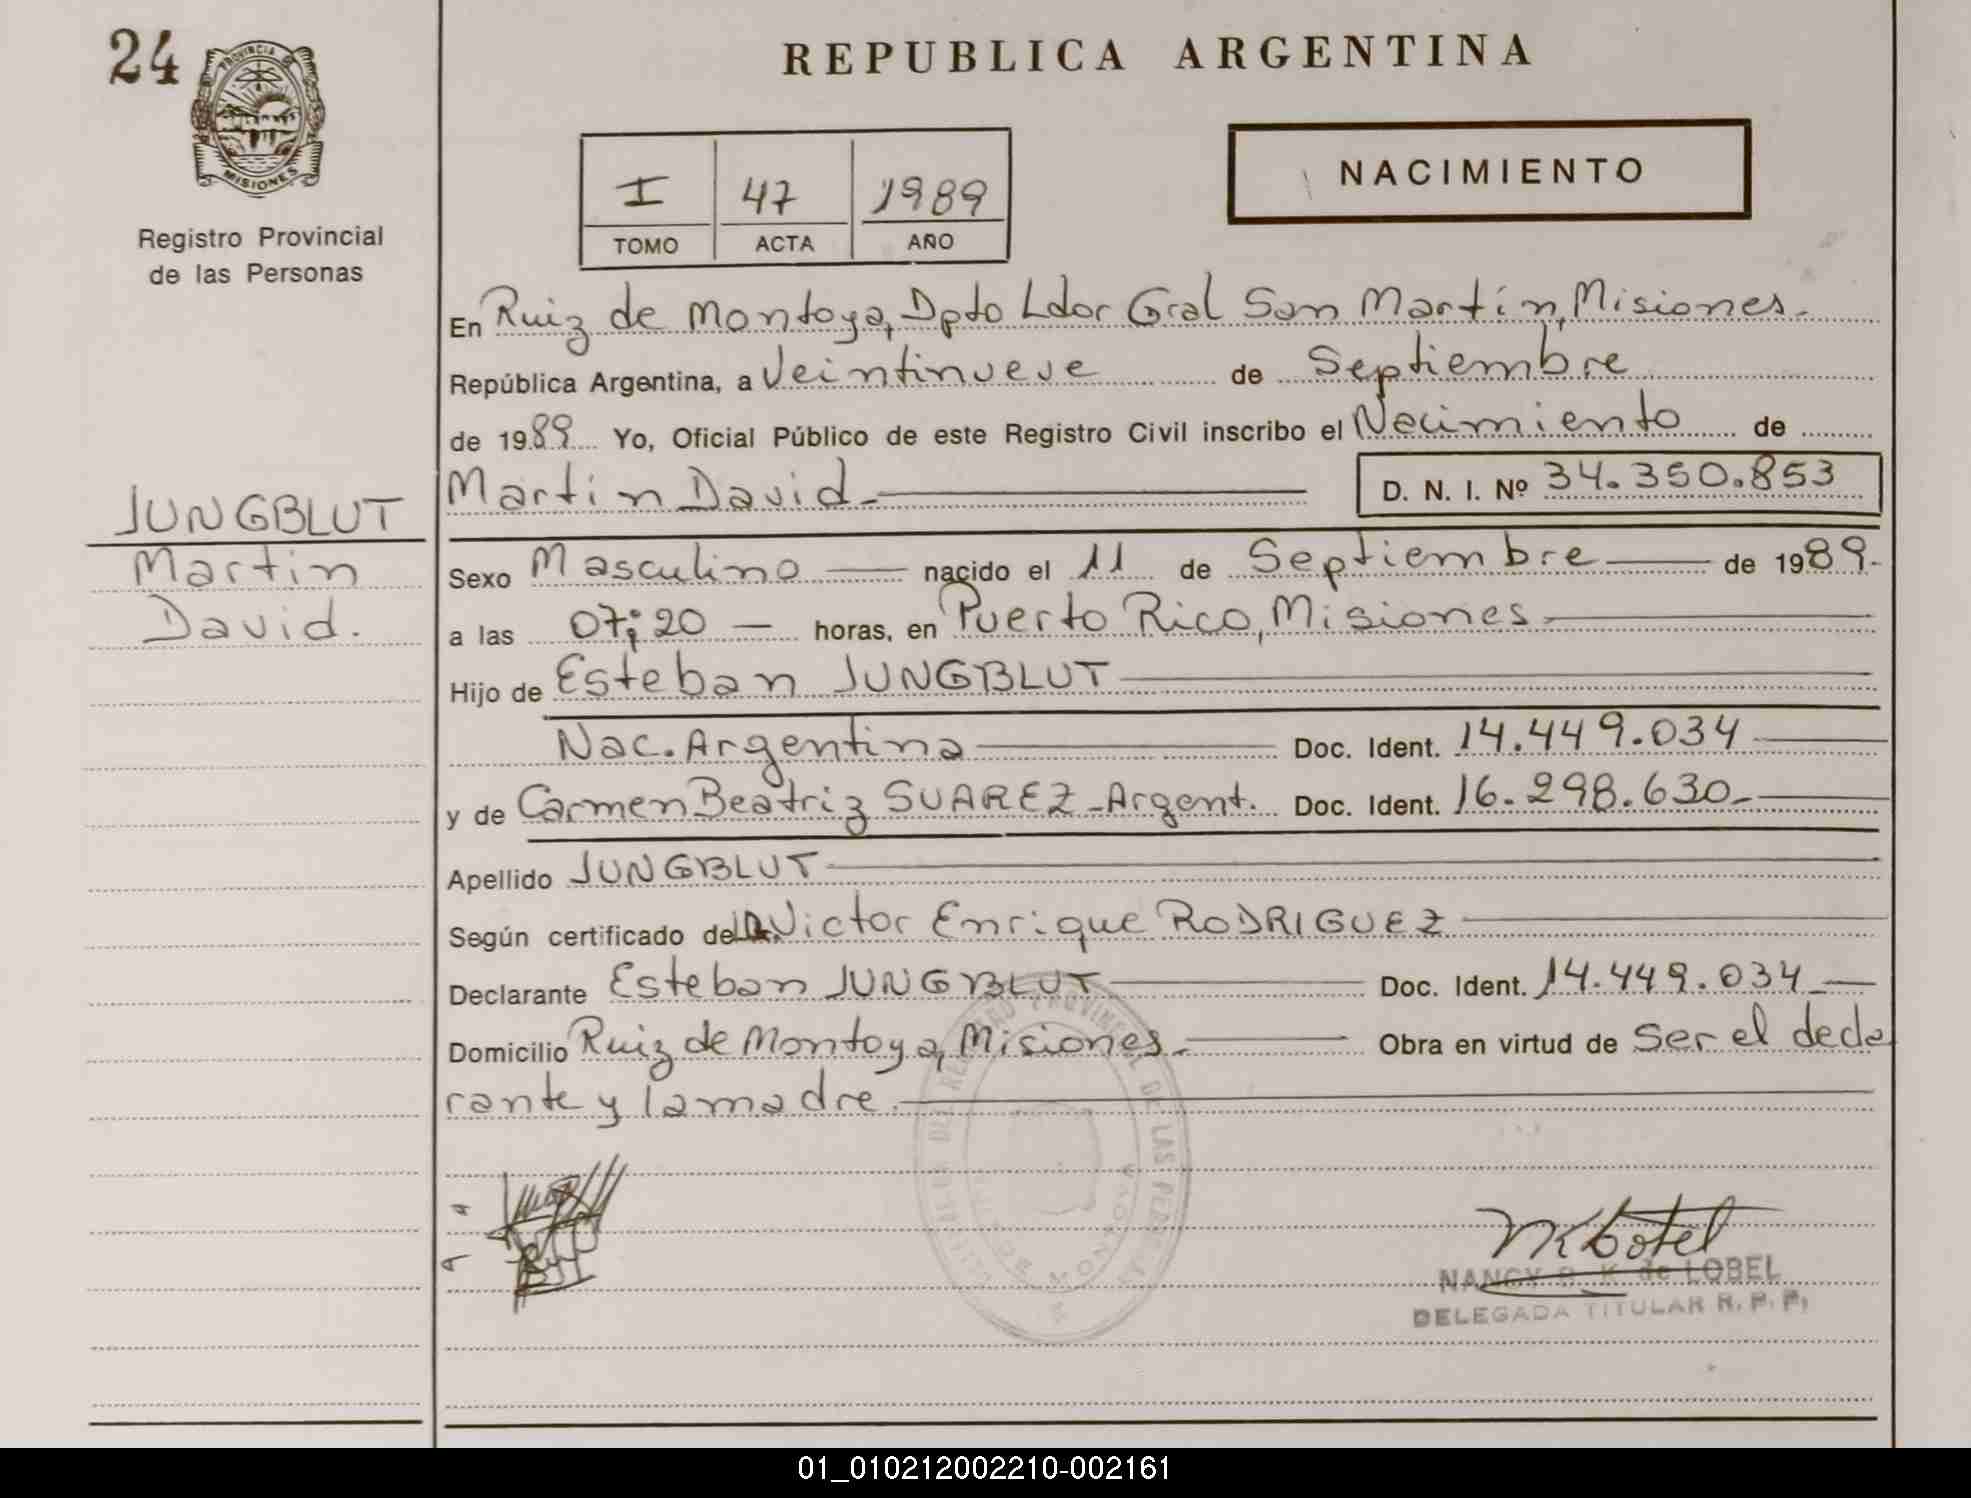 24
PROVINCIA
MISIONES
Registro Provincial
de las Personas
REPUBLICA ARGENTINA
I 47 1989
TOMO ACTA AÑO
NACIMIENTO
En Ruiz de Montoya, Dpto Ldor Gral San Martín, Misiones.
República Argentina, a Veintinueve de Septiembre
de 1989 Yo, Oficial Público de este Registro Civil inscribo el Nacimiento de
Martin David.
D. N. I. Nº 34.350.853
JUNGBLUT
Martin
David.
Sexo Masculino nacido el 11 de Septiembre de 1989.
a las 07:20 horas, en Puerto Rico, Misiones
Hijo de Esteban JUNGBLUT
Nac. Argentina Doc. Ident. 14.449.034
y de Carmen Beatriz SUAREZ-Argent. Doc. Ident. 16.298.630-
Apellido JUNGBLUT
Según certificado del Dr. Victor Enrique RODRIGUEZ
Declarante Esteban JUNGBLUT Doc. Ident. 14.449.034
Domicilio Ruiz de Montoya, Misiones. Obra en virtud de Ser el decla
rante y la madre.
REGISTRO PROVINCIAL DE LAS
DE MONTOYA
NANCY B. K. de LOBEL
DELEGADA TITULAR R. P. P.
01_010212002210-002161